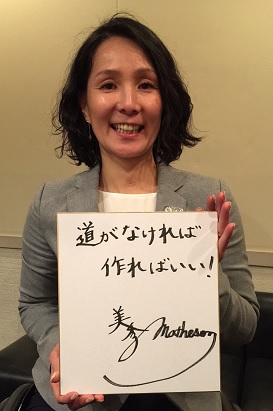 道がなければ
作ればいい!
美季 Matheson